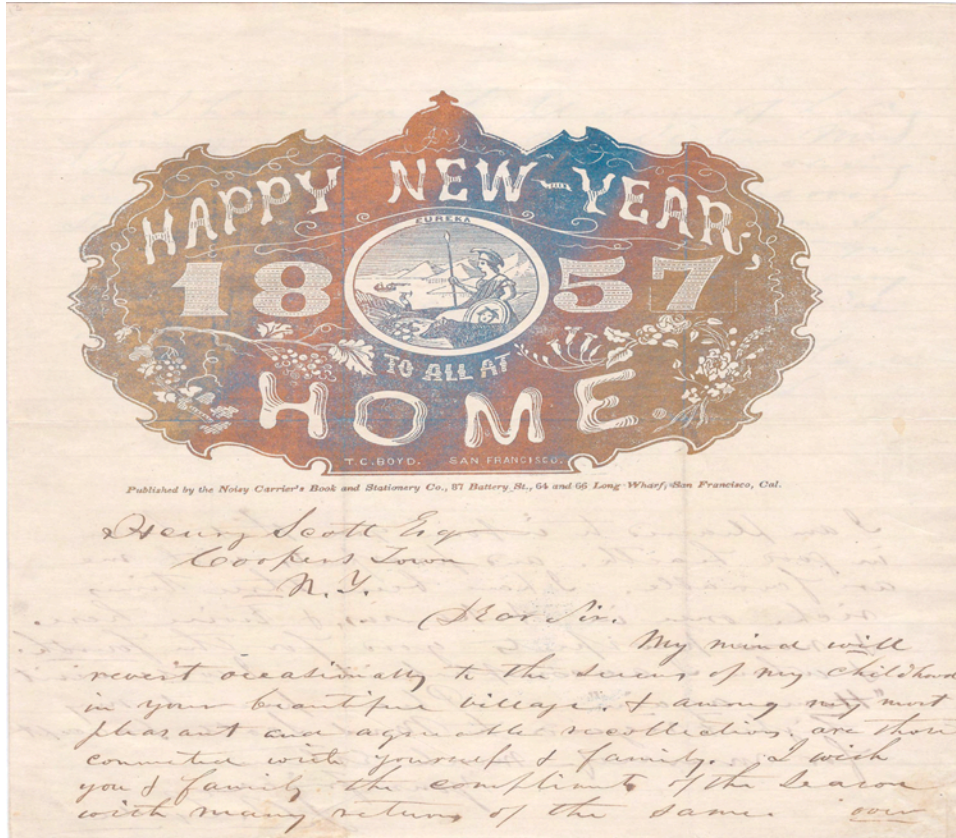 HAPPY NEW-YEAR,
EUREKA
1857
TO ALL AT
HOME.
T.C. BOYD. SAN FRANCISCO.
Published by the Noisy Carrier's Book and Stationery Co., 87 Battery St., 64 and 66 Long Wharf, San Francisco, Cal.
Henry Scott Esq
Coopers Town
N.Y.
Dear Sir.
My mind will
revert occasionally to the scenes of my childhood
in your beautiful village. & among my most
pleasant and agreeable recollections are those
connected with yourself & family. I wish
you & family the compliments of the season
with many returns of the same. over